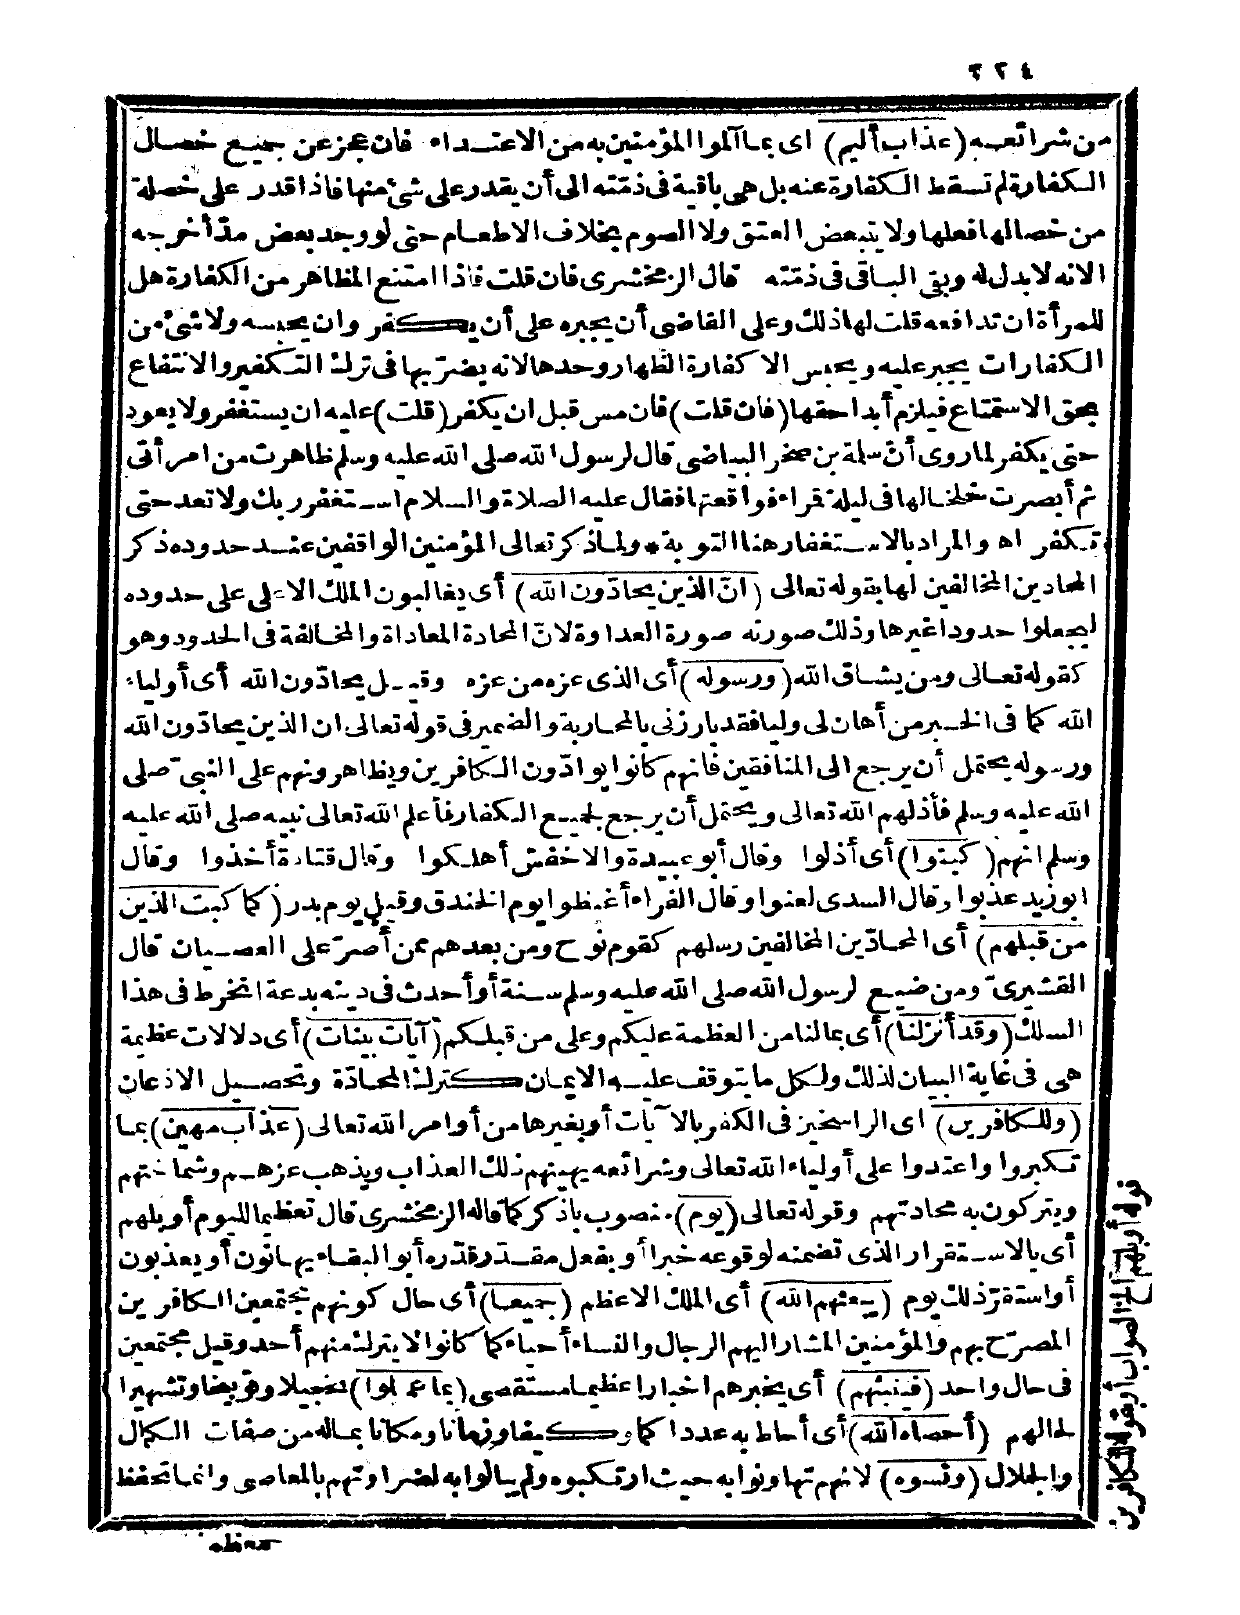 ٢٢٤
من شرائعه (عذاب أليم) اى بما آلموا المؤمنين به من الاعتداء فان عجز عن جميع خصال
الكفارة لم تسقط الكفارة عنه بل هى باقية فى ذمّته الى أن يقدر على شئ منها فاذا قدر على خصلة
من خصالها فعلها ولا يتبعض العتق ولا الصوم بخلاف الاطعام حتى لو وجد بعض مدّ أخرجه
الانه لا بدل له وبقى الباقى فى ذمّته قال الزمخشرى فان قلت فاذا امتنع المظاهر من الكفارة هل
للمرأة ان تدافعه قلت لها ذلك وعلى القاضى أن يجبره على أن يكفر وان يحبسه ولا شئ من
الكفارات يجبر عليه ويحبس الا كفارة الظهار وحدها لانه يضرّ بها فى ترك التكفير والانتفاع
بحق الاستمتاع فيلزم أبدا حقها (فان قلت) فان مس قبل ان يكفر (قلت) عليه ان يستغفر ولا يعود
حتى يكفر لما روى أنّ سلمة بن صخر البياضى قال لرسول الله صلى الله عليه وسلم ظاهرت من امرأتى
ثم أبصرت خلخالها فى ليلة قمراء فواقعتها فقال عليه الصلاة والسلام استغفر ربك ولا تعد حتى
تكفر اه والمراد بالاستغفار هنا التوبة * ولما ذكر تعالى المؤمنين الواقفين عند حدوده ذكر
المحادين المخالفين لها بقوله تعالى (انّ الذين يحادّون الله) أى يغالبون الملك الاعلى على حدوده
ليجعلوا حدودا غيرها وذلك صورته صورة العداوة لانّ المحادة المعاداة والمخالفة فى الحدود وهو
كقوله تعالى ومن يشاق الله (ورسوله) أى الذى عزه من عزه وقيل يحادّون الله أى أولياء
الله كما فى الخبر من أهان لى وليا فقد بارزنى بالمحاربة والضمير فى قوله تعالى ان الذين يحادّون الله
ورسوله يحتمل أن يرجع الى المنافقين فانهم كانوا يوادّون الكافرين ويظاهرونهم على النبىّ صلى
الله عليه وسلم فأذلهم الله تعالى ويحتمل أن يرجع لجميع الكفار فأعلم الله تعالى نبيه صلى الله عليه
وسلم انهم (كبتوا) أى أذلوا وقال أبو عبيدة والاخفش أهلكوا وقال قتادة أخذوا وقال
ابو زيد عذبوا وقال السدى لعنوا وقال الفراء أغيظوا يوم الخندق وقيل يوم بدر (كما كبت الذين
من قبلهم) أى المحادّين المخالفين رسلهم كقوم نوح ومن بعدهم ممن أصرّ على العصيان قال
القشيرىّ ومن ضيع لرسول الله صلى الله عليه وسلم سنة أو أحدث فى دينه بدعة انخرط فى هذا
السلك (وقد أنزلنا) أى بما لنا من العظمة عليكم وعلى من قبلكم (آيات بينات) أى دلالات عظيمة
هى فى غاية البيان لذلك ولكل ما يتوقف عليه الايمان كترك المحادّة وتحصيل الاذعان
(وللكافرين) اى الراسخين فى الكفر بالآيات أو بغيرها من أوامر الله تعالى (عذاب مهين) بما
تكبروا واعتدوا على أولياء الله تعالى وشرائعه يهينهم ذلك العذاب ويذهب عزهم وشماختهم
ويتركون به محادتهم وقوله تعالى (يوم) منصوب باذكر كما قاله الزمخشرى قال تعظيما لليوم أو بلهم
أى بالاستقرار الذى تضمنه لوقوعه خبرا أو بفعل مقدر قدّره أبو البقاء يهانون أو يعذبون
أو استقرّ ذلك يوم (يبعثهم الله) أى الملك الاعظم (جميعا) أى حال كونهم مجتمعين الكافرين
المصرّح بهم والمؤمنين المشار اليهم الرجال والنساء أحياء كما كانوا لا يترك منهم أحد وقيل مجتمعين
فى حال واحد (فينبئهم) أى يخبرهم اخبارا عظيما مستقصى (بما عملوا) تخجيلا وتوبيخا وتشهيرا
لحالهم (أحصاه الله) أى أحاط به عددا كما وكيفا وزمانا ومكانا بماله من صفات الكمال
والجلال (ونسوه) لانهم تهاونوا به حيث ارتكبوه ولم يبالوا به لضراوتهم بالمعاصى وانما تحفظ
قوله أو بلهم الخ الصواب أو بقوله للكافرين